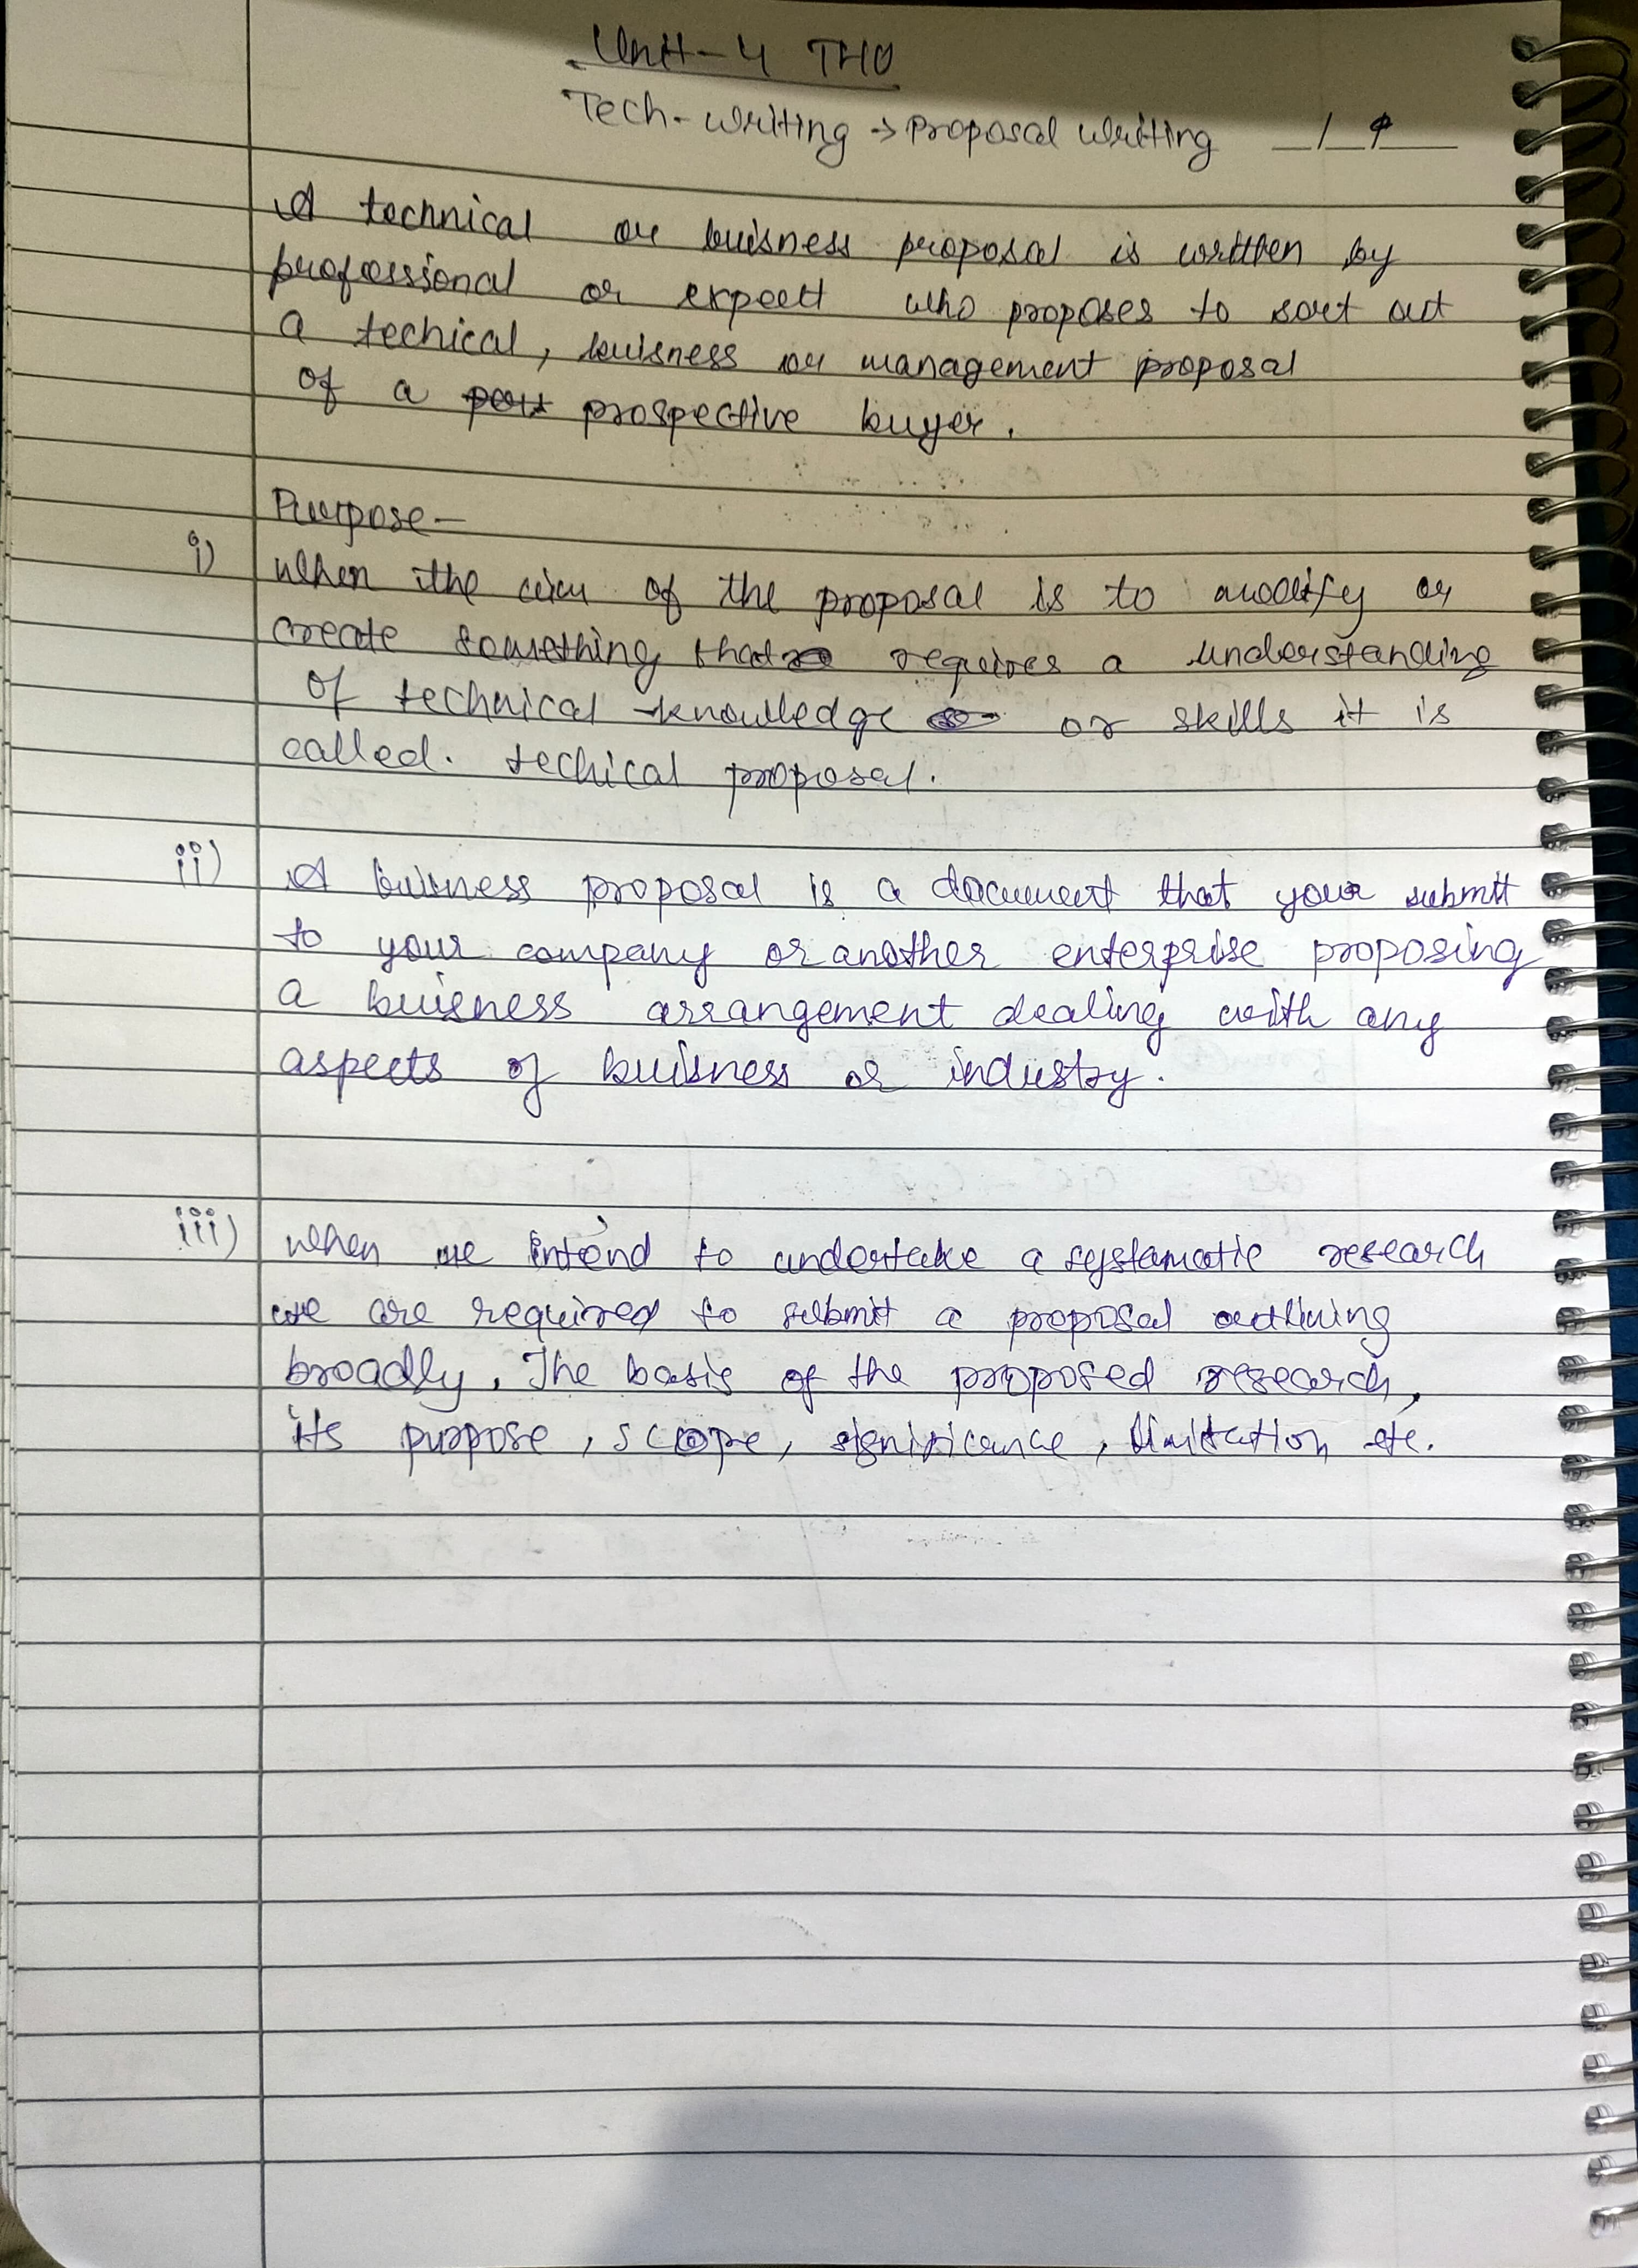 Unit-4 THO
Tech-writing → Proposal writing
A technical or buisness proposal is written by
professional or expert who proposes to sort out
a techical, buisness or management proposal
of a prospective buyer.
Purpose-
i) When the aim of the proposal is to modify or
create something that requires a understanding
of technical knowledge or skills it is
called. techical proposal.
ii) A buisness proposal is a document that your submit
to your company or another enterprise proposing
a buisness arrangement dealing with any
aspects of buisness or industry.
iii) When we intend to undertake a systamatic research
we are required to submit a proposal outlining
broadly. The basis of the proposed research,
its purpose, scope, significance, limitation etc.